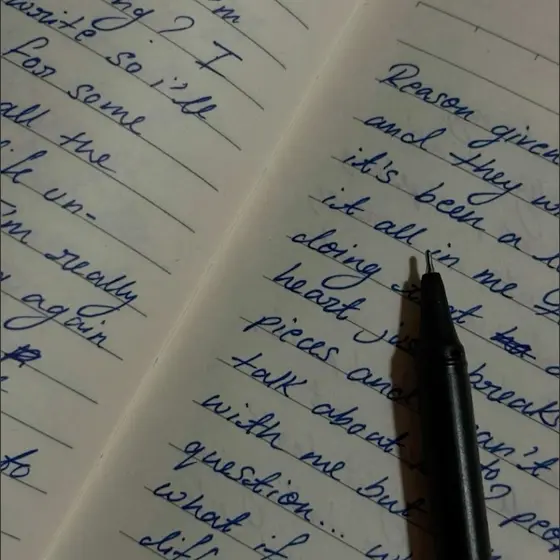 ng? I'm
write so i'll
for some
all the
un-
I'm really
again
to
Reason given
and they w
it's been a l
it all in me
doing at
heart breaks
pieces and can't
talk about to? peo
with me but
question...
what if
diff